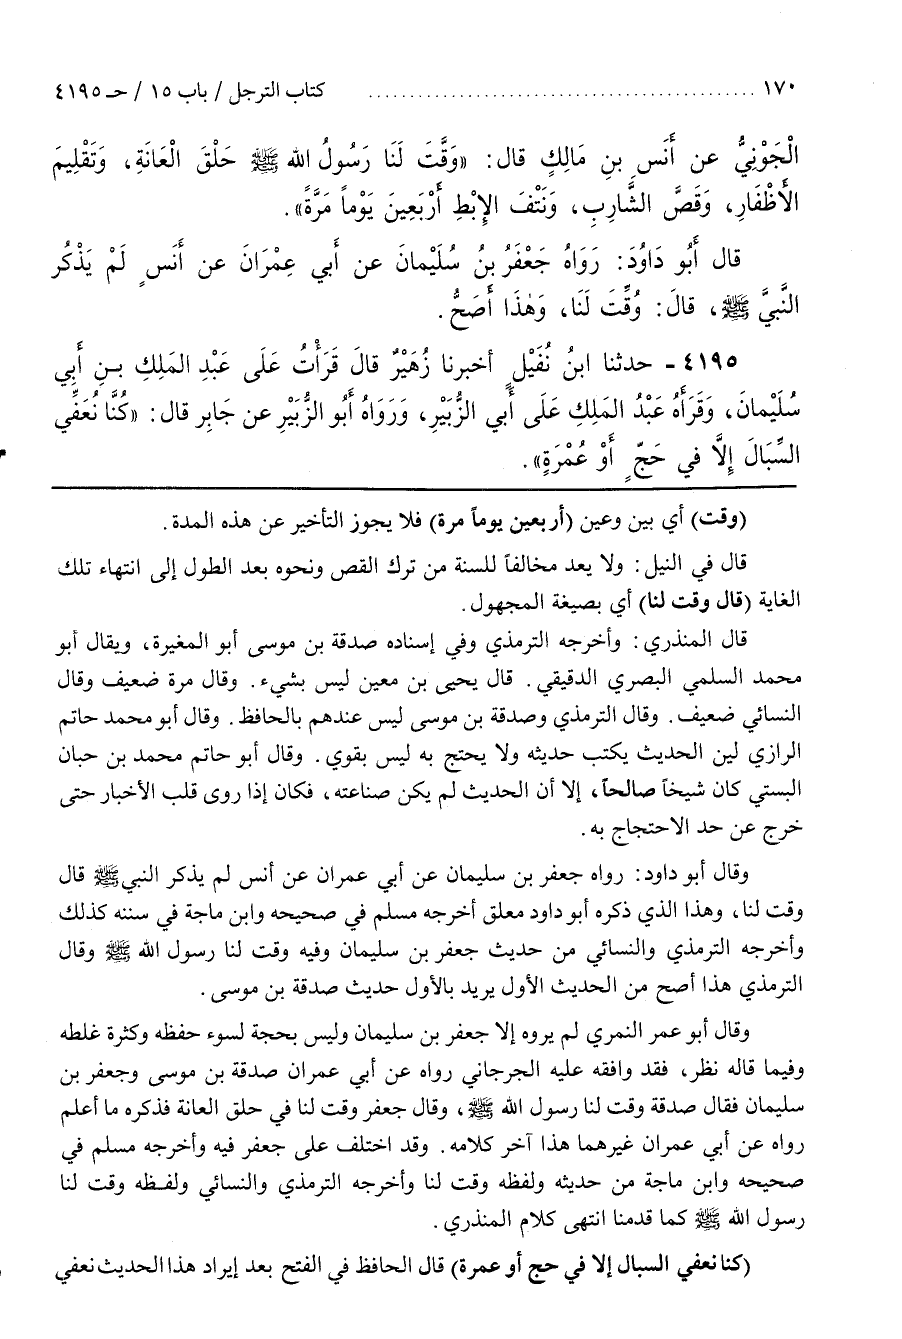 ١٧٠ ................................................ كتاب الترجل / باب ١٥ / حـ ٤١٩٥
الْجَوْنِيُّ عن أَنَسِ بنِ مَالِكٍ قال: «وَقَّتَ لَنَا رَسُولُ الله ﷺ حَلْقَ الْعَانَةِ، وَتَقْلِيمَ
الأَظْفَارِ، وَقَصَّ الشَّارِبِ، وَنَتْفَ الإبْطِ أَرْبَعِينَ يَوْماً مَرَّةً».
قال أَبُو دَاوُدَ: رَوَاهُ جَعْفَرُ بنُ سُلَيْمانَ عن أبي عِمْرَانَ عن أَنَسٍ لَمْ يَذْكُر
النَّبيَّ ﷺ، قالَ: وُقِّتَ لَنَا، وَهٰذَا أَصَحُّ.
٤١٩٥ - حدثنا ابنُ نُفَيْلٍ أخبرنا زُهَيْرٌ قالَ قَرَأْتُ عَلَى عَبْدِ المَلِكِ بنِ أبي
سُلَيْمانَ، وَقَرَأَهُ عَبْدُ المَلِكِ عَلَى أبي الزُّبَيْرِ، وَرَوَاهُ أبُو الزُّبَيْرِ عن جَابِرٍ قال: «كُنَّا نُعَفِّي
السِّبَالَ إلَّا في حَجٍّ أوْ عُمْرَةٍ».
(وقت) أي بين وعين (أربعين يوماً مرة) فلا يجوز التأخير عن هذه المدة.
قال في النيل: ولا يعد مخالفاً للسنة من ترك القص ونحوه بعد الطول إلى انتهاء تلك
الغاية (قال وقت لنا) أي بصيغة المجهول.
قال المنذري: وأخرجه الترمذي وفي إسناده صدقة بن موسى أبو المغيرة، ويقال أبو
محمد السلمي البصري الدقيقي. قال يحيى بن معين ليس بشيء. وقال مرة ضعيف وقال
النسائي ضعيف. وقال الترمذي وصدقة بن موسى ليس عندهم بالحافظ. وقال أبو محمد حاتم
الرازي لين الحديث يكتب حديثه ولا يحتج به ليس بقوي. وقال أبو حاتم محمد بن حبان
البستي كان شيخاً صالحاً، إلا أن الحديث لم يكن صناعته، فكان إذا روى قلب الأخبار حتى
خرج عن حد الاحتجاج به.
وقال أبو داود: رواه جعفر بن سليمان عن أبي عمران عن أنس لم يذكر النبي ﷺ قال
وقت لنا، وهذا الذي ذكره أبو داود معلق أخرجه مسلم في صحيحه وابن ماجة في سننه كذلك
وأخرجه الترمذي والنسائي من حديث جعفر بن سليمان وفيه وقت لنا رسول الله ﷺ وقال
الترمذي هذا أصح من الحديث الأول يريد بالأول حديث صدقة بن موسى.
وقال أبو عمر النمري لم يروه إلا جعفر بن سليمان وليس بحجة لسوء حفظه وكثرة غلطه
وفيما قاله نظر، فقد وافقه عليه الجرجاني رواه عن أبي عمران صدقة بن موسى وجعفر بن
سليمان فقال صدقة وقت لنا رسول الله ﷺ، وقال جعفر وقت لنا في حلق العانة فذكره ما أعلم
رواه عن أبي عمران غيرهما هذا آخر كلامه. وقد اختلف على جعفر فيه وأخرجه مسلم في
صحيحه وابن ماجة من حديثه ولفظه وقت لنا وأخرجه الترمذي والنسائي ولفظه وقت لنا
رسول الله ﷺ كما قدمنا انتهى كلام المنذري.
(كنا نعفي السبال إلا في حج أو عمرة) قال الحافظ في الفتح بعد إيراد هذا الحديث نعفي